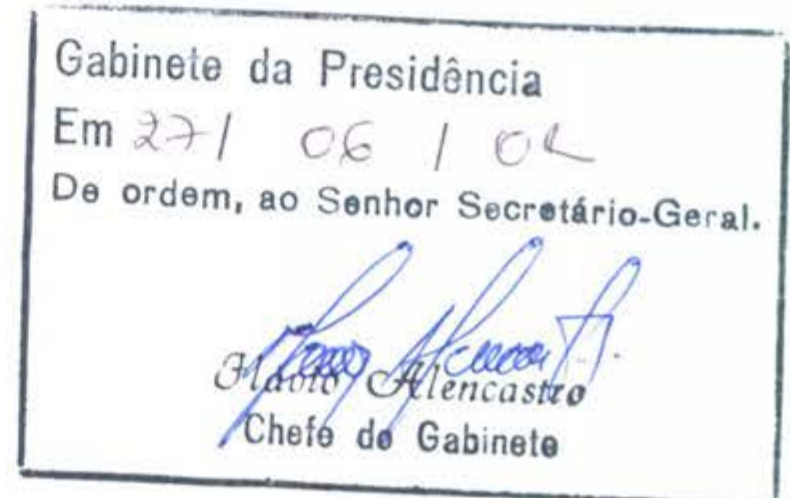 Gabinete da Presidência
Em 27/ 06 / 02
De ordem, ao Senhor Secretário-Geral.
Flavio Alencastro
Chefe de Gabinete